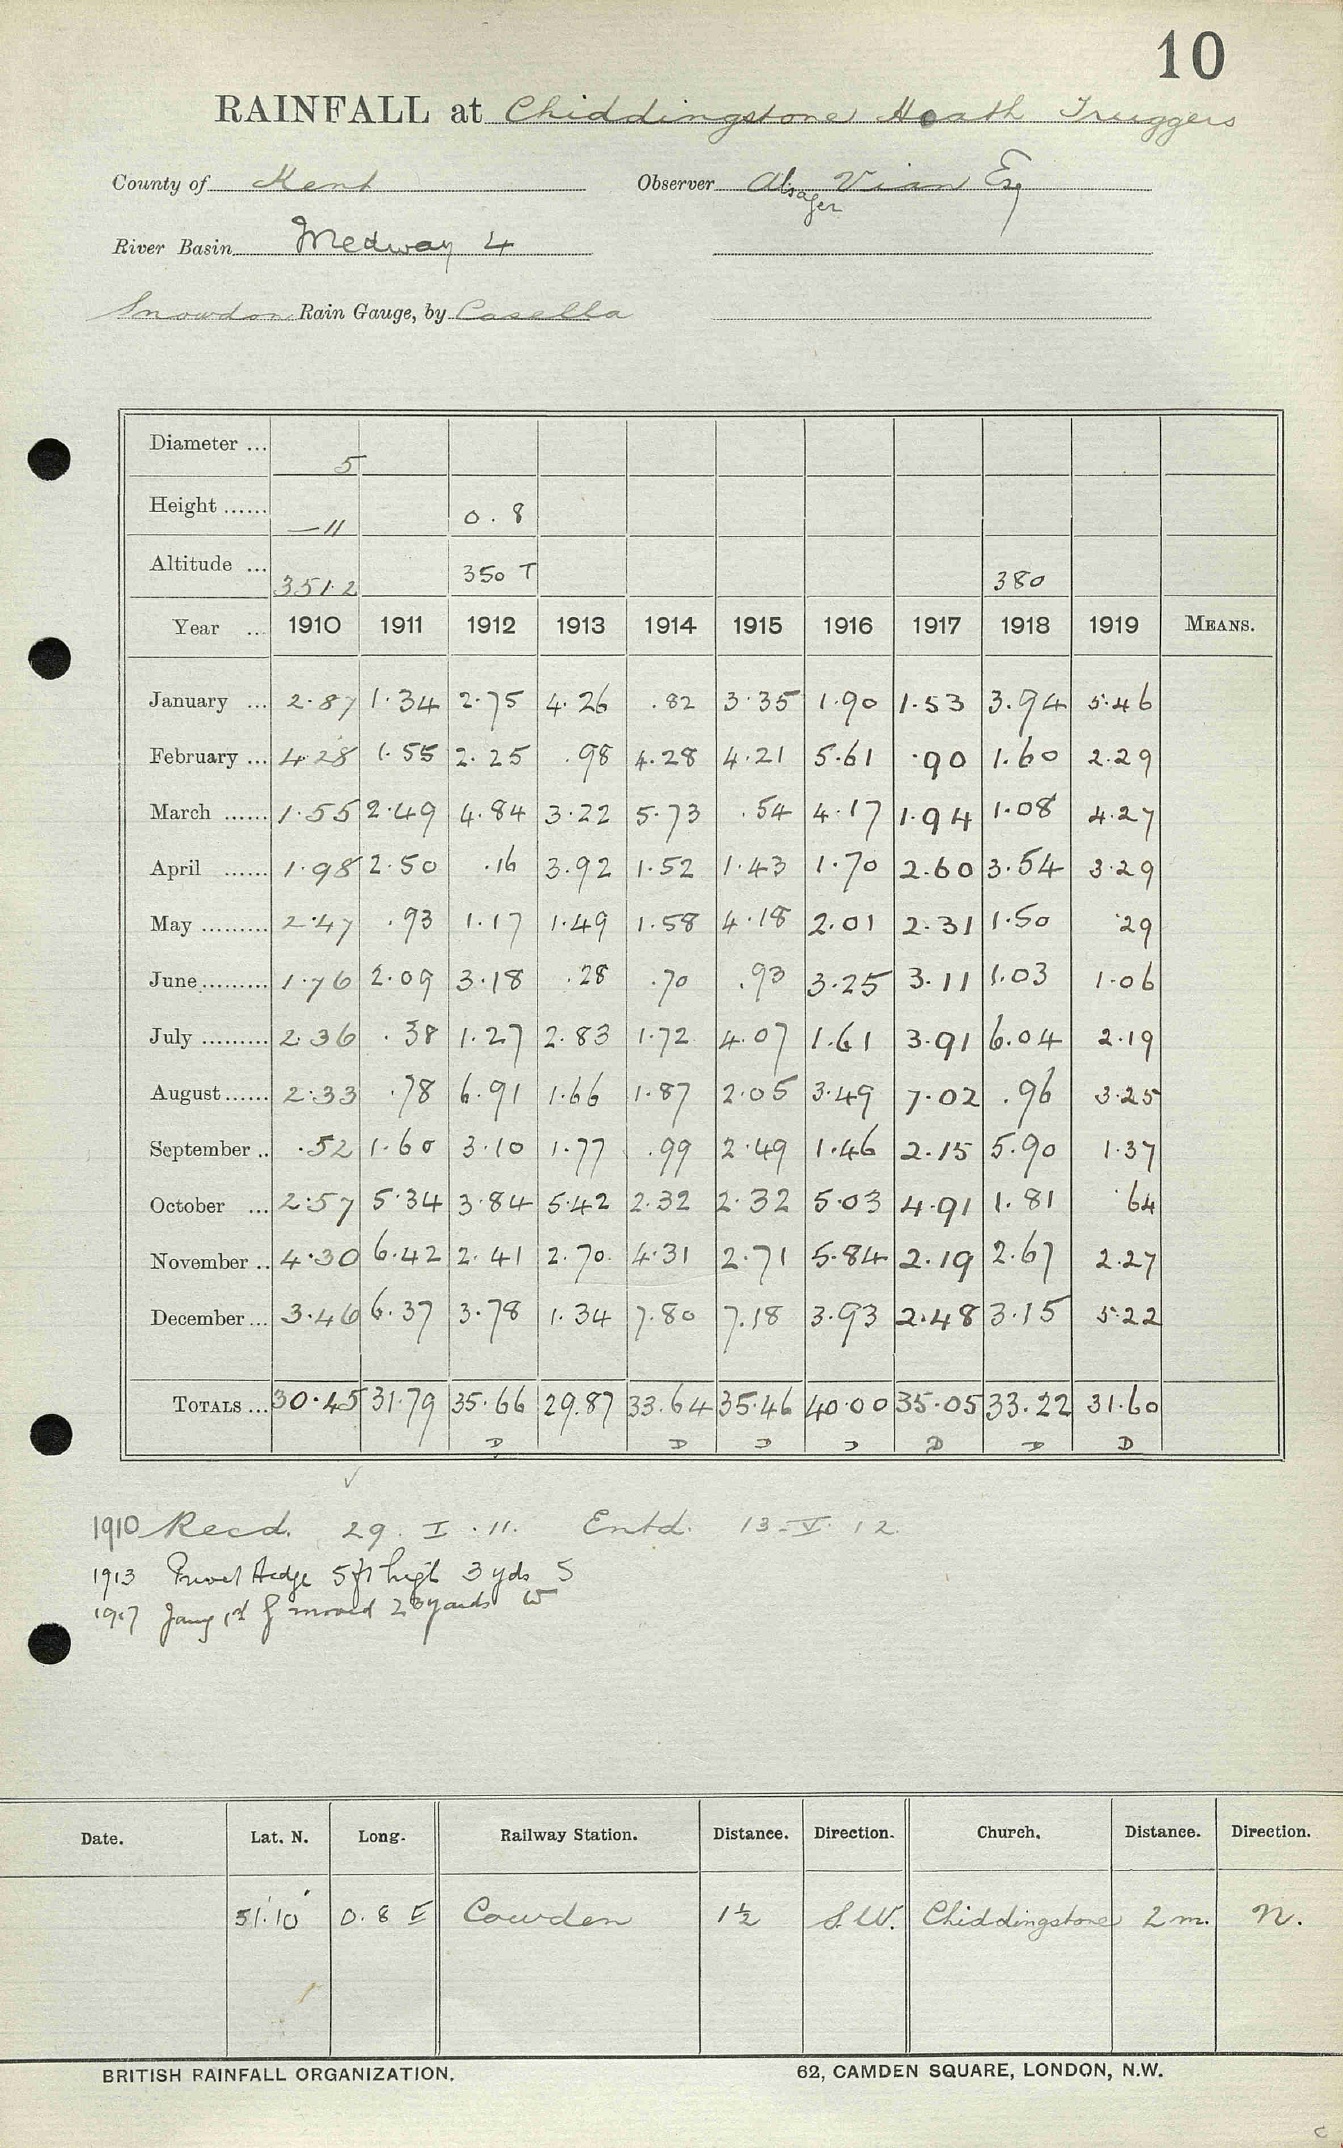 10
RAINFALL at Chiddingstone Hoath Truggers
County of Kent Observer Alsager Vian Esq
River Basin Medway 4
Snowdon Rain Gauge, by Casella
Diameter ... 5
Height ...... —11 0.8
Altitude ... 351.2 350 T 380
Year ... 1910 1911 1912 1913 1914 1915 1916 1917 1918 1919 MEANS.
January ... 2.87 1.34 2.75 4.26 .82 3.35 1.90 1.53 3.94 5.46
February ... 4.28 1.55 2.25 .98 4.28 4.21 5.61 .90 1.60 2.29
March ...... 1.55 2.49 4.84 3.22 5.73 .54 4.17 1.94 1.08 4.27
April ...... 1.98 2.50 .16 3.92 1.52 1.43 1.70 2.60 3.54 3.29
May ......... 2.47 .93 1.17 1.49 1.58 4.18 2.01 2.31 1.50 .29
June ......... 1.76 2.09 3.18 .28 .70 .93 3.25 3.11 1.03 1.06
July ......... 2.36 .38 1.27 2.83 1.72 4.07 1.61 3.91 6.04 2.19
August ...... 2.33 .78 6.91 1.66 1.87 2.05 3.49 7.02 .96 3.25
September .. .52 1.60 3.10 1.77 .99 2.49 1.46 2.15 5.90 1.37
October ... 2.57 5.34 3.84 5.42 2.32 2.32 5.03 4.91 1.81 .64
November .. 4.30 6.42 2.41 2.70 4.31 2.71 5.84 2.19 2.67 2.27
December ... 3.46 6.37 3.78 1.34 7.80 7.18 3.93 2.48 3.15 5.22
TOTALS ... 30.45 31.79 35.66 29.87 33.64 35.46 40.00 35.05 33.22 31.60
D D D D D D D
1910 Recd. 29. I. 11. Entd. 13. V. 12.
1913 Privet Hedge 5 ft high 3 yds S
1917 Jany 1st g moved 20 yards W
Date. Lat. N. Long. Railway Station. Distance. Direction. Church. Distance. Direction.
51.10 0.8 E Cowden 1½ S.W. Chiddingstone 2 m. N.
BRITISH RAINFALL ORGANIZATION. 62, CAMDEN SQUARE, LONDON, N.W.
c